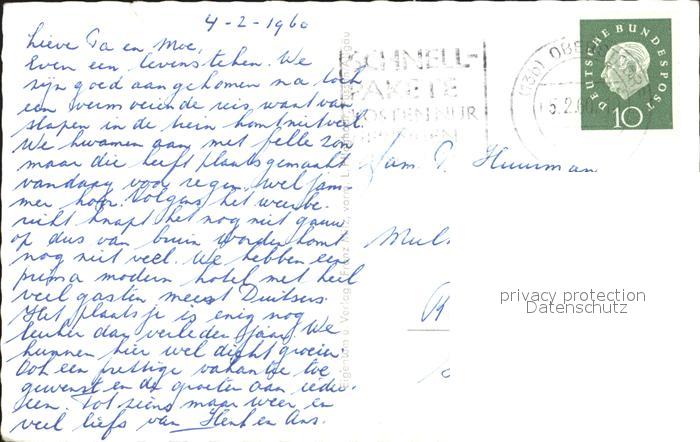 4-2-1960
Lieve Pa en Moe,
Even een levensteken. We
zijn goed aangekomen na toch
een vermoeiende reis, want van
slapen in de trein komt niet veel.
We kwamen aan met felle zon
maar die heeft plaats gemaakt
vandaag voor regen, wel jam-
mer hoor. Volgens het weerbe-
richt knapt het nog niet gauw
op dus van bruin worden komt
nog niet veel. We hebben een
prima modern hotel met heel
veel gasten meest Duitsers.
Het plaatsje is enig nog
leuker dan verleden jaar. We
kunnen hier wel
Ook een prettige vakantie toe
gewenst en de groeten aan ieder-
een. Tot ziens maar weer en
veel liefs van Henk en Ans.
SCHNELL-
PAKETE
KOSTEN NUR
(13b) OBER
5.2.60
DEUTSCHE BUNDESPOST
10
Fam. P. Huurman
Eigentum u. Verlag Franz
privacy protection
Datenschutz